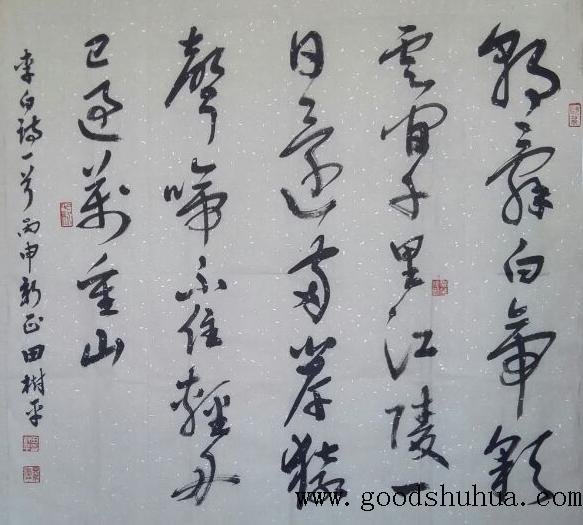 朝辭白帝彩
雲間千里江陵一
日還兩岸猿
聲啼不住輕舟
已過萬重山
李白詩一首 丙申新正 田樹平
www.goodshuhua.com